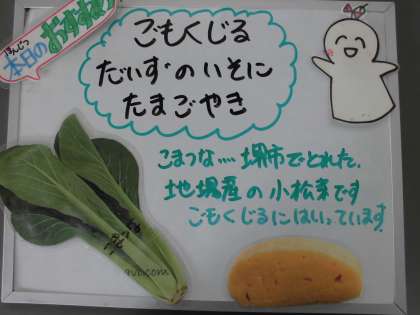 ほんじつ
本日のおすすめ
ごもくじる
だいずのいそに
たまごやき
こまつな…堺市でとれた、
地場産の小松菜です
ごもくじるにはいっています。